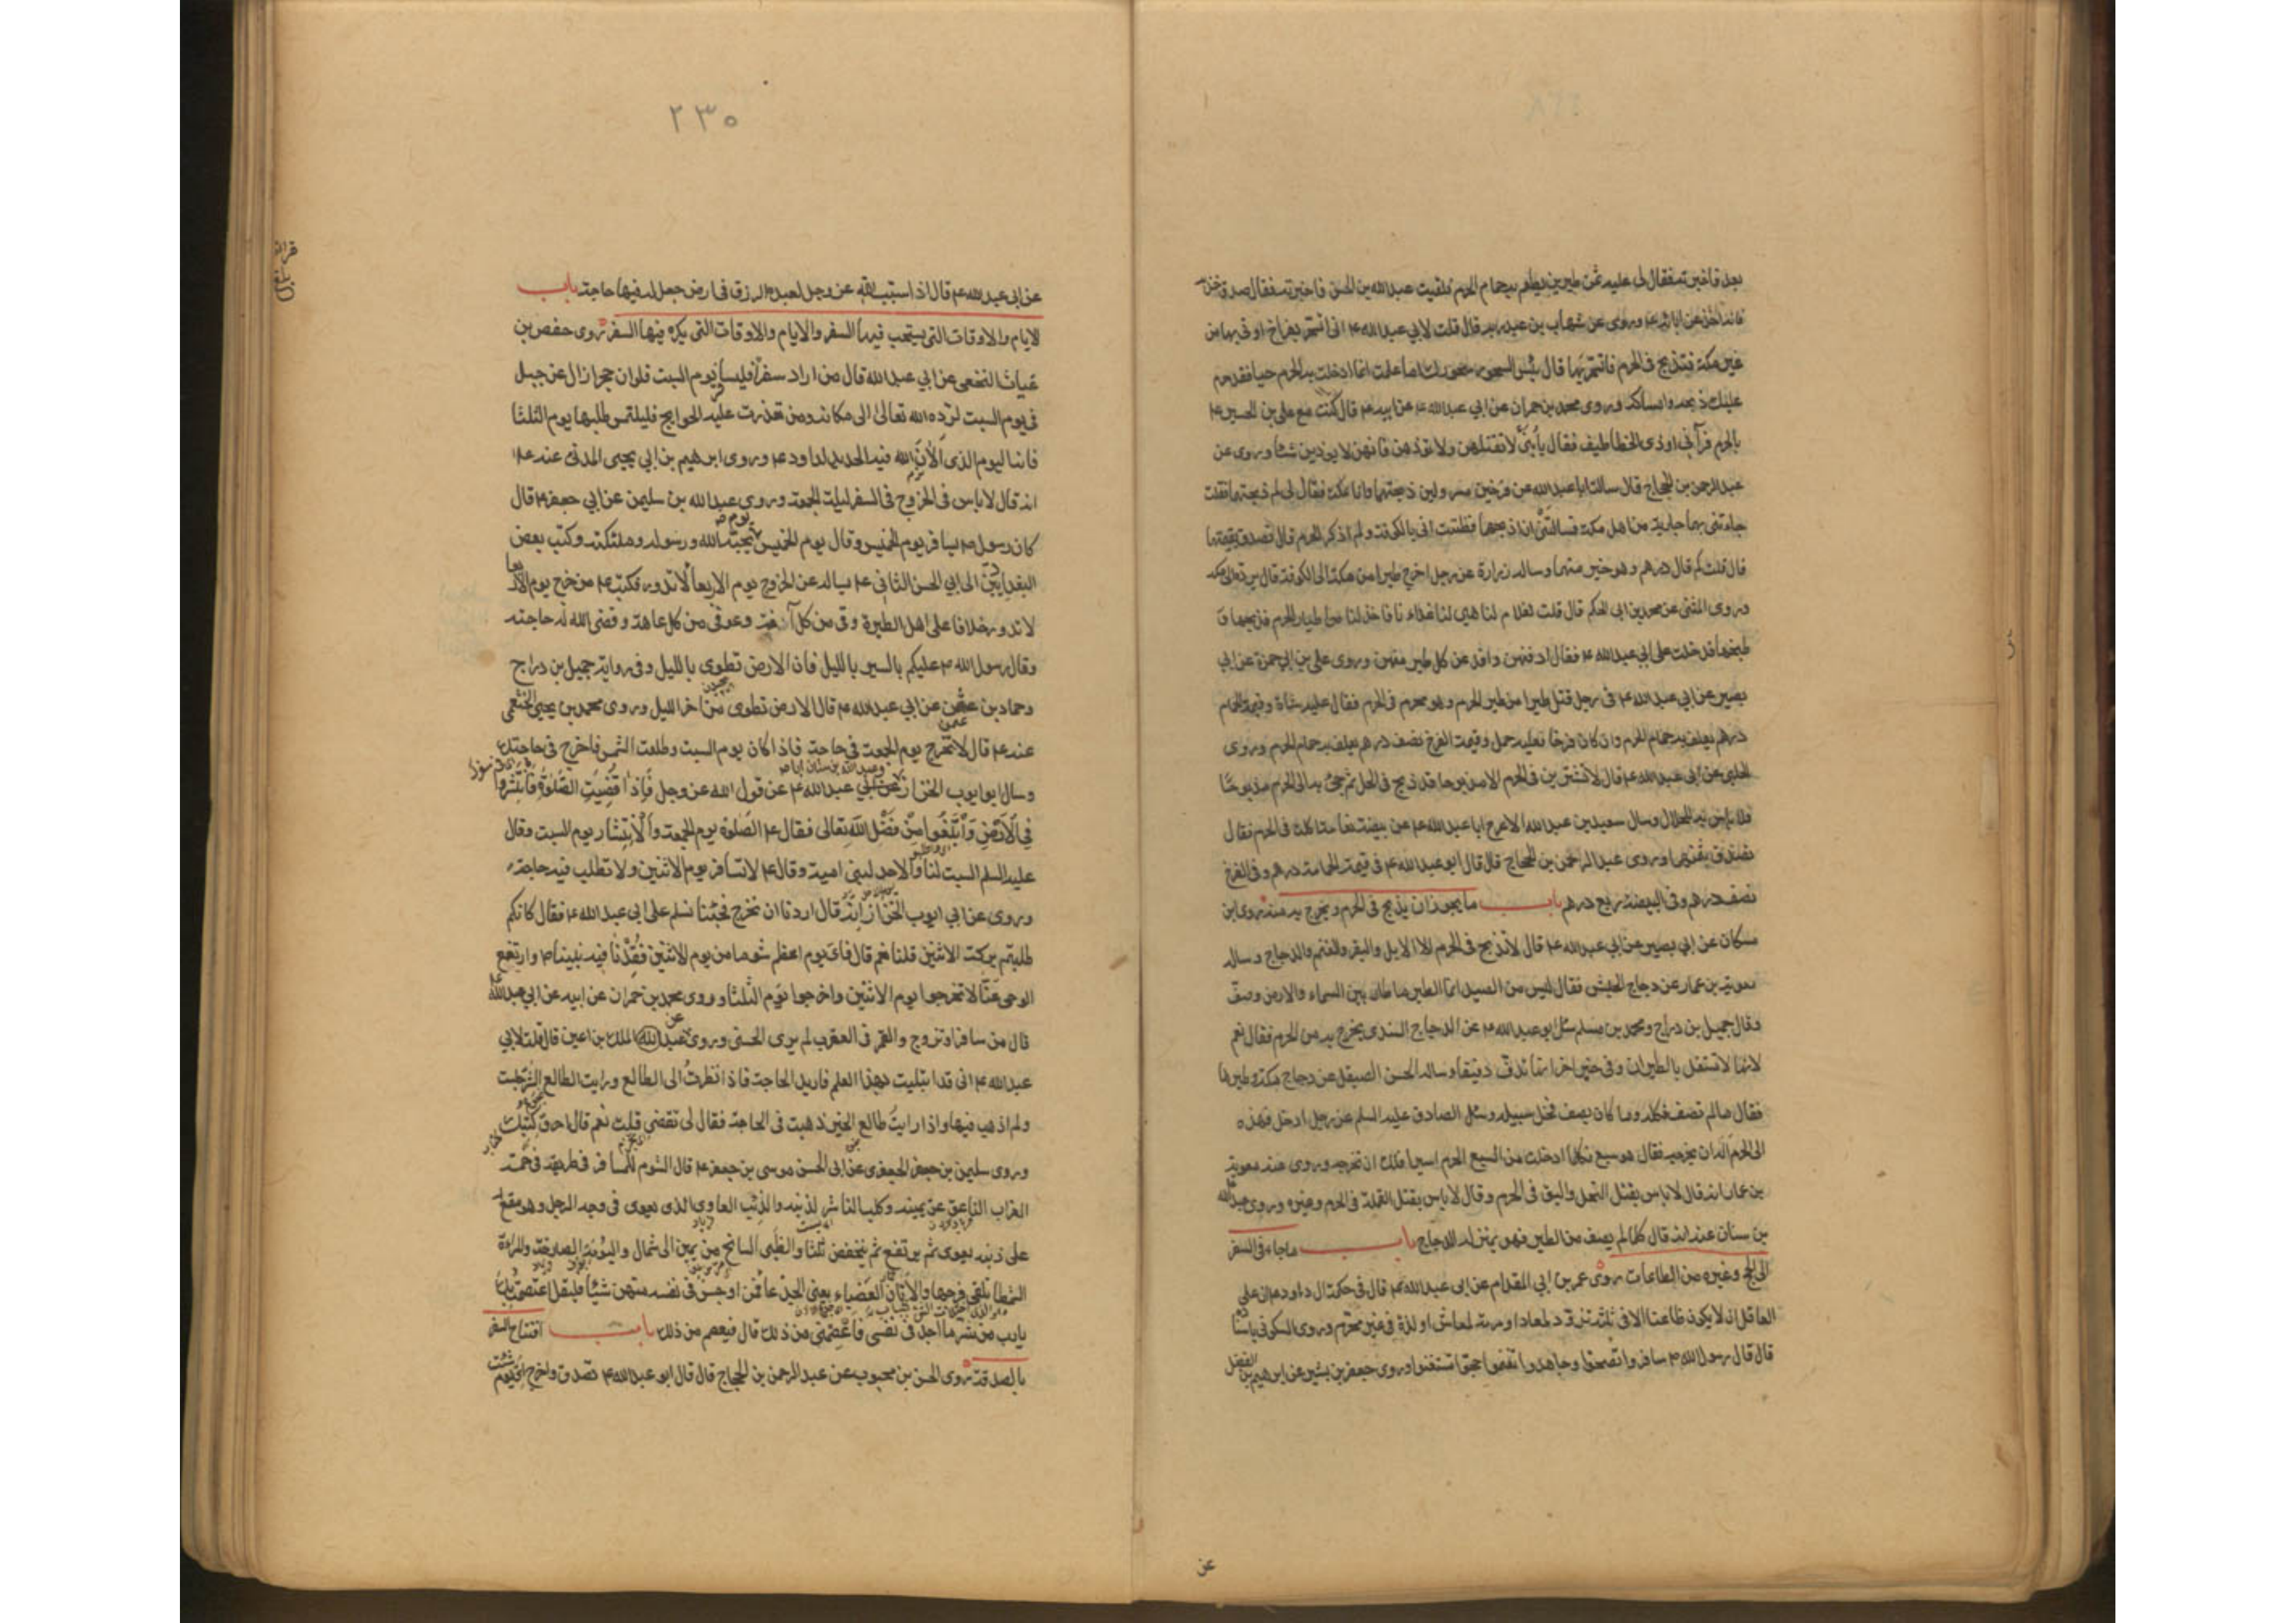 بعد فاخبرته فقال لى عليه ثمن طيرين يطعم به حمام الحرم فلقيت عبد الله بن الحسن فاخبرته فقال صدق
وروى عن شهاب بن عبد ربه قال قلت لابي عبد الله ع انى اتسحر بفراخ اوتى بها من
غير مكة فتذبح فى الحرم فاتسحر بها قال بئس السحور سحورك اما علمت انما ادخلت به الحرم حيا فقد حرم
عليك ذبحه وامساكه وروى محمد بن حمران عن ابي عبد الله ع عن ابيه ع قال كنت مع على بن الحسين ع
بالحرم فرآنى اوذى الخطاطيف فقال يا بنى لا تقتلهن ولا تؤذهن فانهن لا يوذين شئا وروى عن
عبد الرحمن بن الحجاج قال سالت ابا عبد الله عن فرخين مسرولين ذبحتهما وانا بمكة فقال لى لم ذبحتهما فقلت
جاءتنى بهما جارية من اهل مكة فسالتنى ان اذبحهما فظننت انى بالكوفة ولم اذكر الحرم قال تصدق بقيمتهما
قال قلت كم قال درهم وهو خير منهما وساله زرارة عن رجل اخرج طيرا من مكة الى الكوفة قال يرده الى مكة
وروى المثنى عن محمد بن ابى الحكم قال قلت لغلام لنا هيئ لنا غداءنا فاخذ لنا من اطيار الحرم فذبحها و
طبخها فدخلت على ابي عبد الله ع فقال ادفنهن وافد عن كل طير منهن وروى على بن ابي حمزة عن ابي
بصير عن ابي عبد الله ع فى رجل قتل طيرا من طير الحرم وهو محرم فى الحرم فقال عليه شاة وقيمة الحمام
درهم يعلف به حمام الحرم وان كان فرخا فعليه حمل وقيمة الفرخ نصف درهم يعلف به حمام الحرم وروى
الحلبى عن ابى عبد الله ع قال لا تشترين فى الحرم الا مذبوحا قد ذبح فى الحل ثم جئ به الى الحرم مذبوحا
فلا باس به للحلال وسال سعيد بن عبد الله الاعرج ابا عبد الله ع عن بيضة نعامة اكلت فى الحرم فقال
تصدق بثمنها وروى عبد الرحمن بن الحجاج قال قال ابو عبد الله ع فى قيمة الحمامة درهم وفى الفرخ
نصف درهم وفى البيضة ربع درهم باب ما يجوز ان يذبح فى الحرم ويخرج به منه روى ابن
مسكان عن ابي بصير عن ابي عبد الله ع قال لا تذبح فى الحرم الا الابل والبقر والغنم والدجاج وساله
معوية بن عمار عن دجاج الحبش فقال ليس من الصيد انما الطير ما طار بين السماء والارض وصف
وقال جميل بن دراج ومحمد بن مسلم سئل ابو عبد الله ع عن الدجاج السندى يخرج به من الحرم فقال نعم
لانها لا تستقل بالطيران وفى خبر اخر انها تدف دفيفا وساله الحسن الصيقل عن دجاج مكة وطيرها
فقال ما لم تصف فكله وما كان يصف فخل سبيله وسئل الصادق عليه السلم عن رجل ادخل فهده
الى الحرم اله ان يخرجه فقال هو سبع فكلما ادخلت من السبع الحرم اسيرا فلك ان تخرجه وروى عنه معوية
بن عمار انه قال لا باس بقتل النمل والبق فى الحرم وقال لا باس بقتل القملة فى الحرم وغيره وروى عبد الله
بن سنان عنه انه قال كلما لم يصف من الطير فهو بمنزلة الدجاج باب ما جاء فى السفر
الى الحج وغيره من الطاعات روى عمر بن ابي المقدام عن ابى عبد الله ع قال فى حكمة ال داود ان على
العاقل ان لا يكون ظاعنا الا فى ثلثة تزود لمعاد او مرمة لمعاش او لذة فى غير محرم وروى السكونى باسناده
قال قال رسول الله ص سافروا تصحوا وجاهدوا تغنموا حجوا تستغنوا وروى جعفر بن بشير عن ابرهيم بن الفضل
عن
٢٣٠
عن ابى عبد الله ع قال اذا سبب الله عز وجل لعبده الرزق فى ارض جعل له فيها حاجة باب
الايام والاوقات التى يستحب فيها السفر والايام والاوقات التى يكره فيها السفر روى حفص بن
غياث النخعى عن ابي عبد الله قال من اراد سفرا فليسافر يوم السبت فلو ان حجرا زال عن جبل
فى يوم السبت لرده الله تعالى الى مكانه ومن تعذرت عليه الحوايج فليلتمس طلبها يوم الثلثا
فانه اليوم الذى الان الله فيه الحديد لداود ع وروى ابرهيم بن ابي يحيى المدنى عنه ع
انه قال لا باس فى الخروج فى السفر ليلة الجمعة وروى عبد الله بن سليمن عن ابي جعفر ع قال
كان رسول ص يسافر يوم الخميس وقال يوم الخميس يوم يحبه الله ورسوله وملئكته وكتب بعض
البغداديين الى ابي الحسن الثانى ع يساله عن الخروج يوم الاربعا لا تدور فكتب ع من خرج يوم الاربعا
لا تدور خلافا على اهل الطيرة وقى من كل آفة وعوفى من كل عاهة وقضى الله له حاجته
وقال رسول الله ص عليكم بالسير بالليل فان الارض تطوى بالليل وفى رواية جميل بن دراج
وحماد بن عثمن عن ابي عبد الله ع قال الارض تطوى من اخر الليل وروى محمد بن يحيى الخثعمى
عنه ع قال لا تخرج يوم الجمعة فى حاجة فاذا كان يوم السبت وطلعت الشمس فاخرج فى حاجتك
وسال ابو ايوب الخزاز وعبد الله بن سنان ابا عبد الله ع عن قول الله عز وجل فاذا قضيت الصلوة فانتشروا
فى الارض وابتغوا من فضل الله تعالى فقال ع الصلوة يوم الجمعة والانتشار يوم السبت وقال
عليه السلم السبت لنا والاحد لبنى امية وقال ع لا تسافر يوم الاثنين ولا تطلب فيه حاجة
وروى عن ابي ايوب الخزاز انه قال اردنا ان نخرج فجئنا نسلم على ابى عبد الله ع فقال كانكم
طلبتم بركة الاثنين قلنا نعم قال فاى يوم اعظم شوما من يوم الاثنين فقدنا فيه نبينا ص وارتفع
الوحى عنا لا تخرجوا يوم الاثنين واخرجوا يوم الثلثا وروى محمد بن حمران عن ابيه عن ابي عبد الله ع
قال من سافر او تزوج والقمر فى العقرب لم يرى الحسنى وروى عن عبد الملك بن اعين قال قلت لابي
عبد الله ع انى قد ابتليت بهذا العلم فاريد الحاجة فاذا نظرت الى الطالع ورايت الطالع الشر جلست
ولم اذهب فيها واذا رايت طالع الخير ذهبت فى الحاجة فقال لى تقضى قلت نعم قال احرق كتبك
وروى سليمن بن جعفر الجعفرى عن ابى الحسن موسى بن جعفر ع قال الشوم للمسافر فى طريقه فى خمسة
الغراب الناعق عن يمينه وكلب الناشر لذنبه والذئب العاوى الذى يعوى فى وجه الرجل وهو مقع
على ذنبه يعوى ثم يرتفع ثم ينخفض ثلثا والظبى السانح من يمين الى شمال والبومة الصارخة والمراة
الشمطا تلقى فرجها والاتان العضباء يعنى الجدعا فمن اوجس فى نفسه منهن شيئا فليقل اعتصمت بك
يا رب من شر ما اجد فى نفسى فاعصمنى من ذلك قال فيعصم من ذلك باب افتتاح السفر
بالصدقة روى الحسن بن محبوب عن عبد الرحمن بن الحجاج قال قال ابو عبد الله ع تصدق واخرج اى يوم شئت